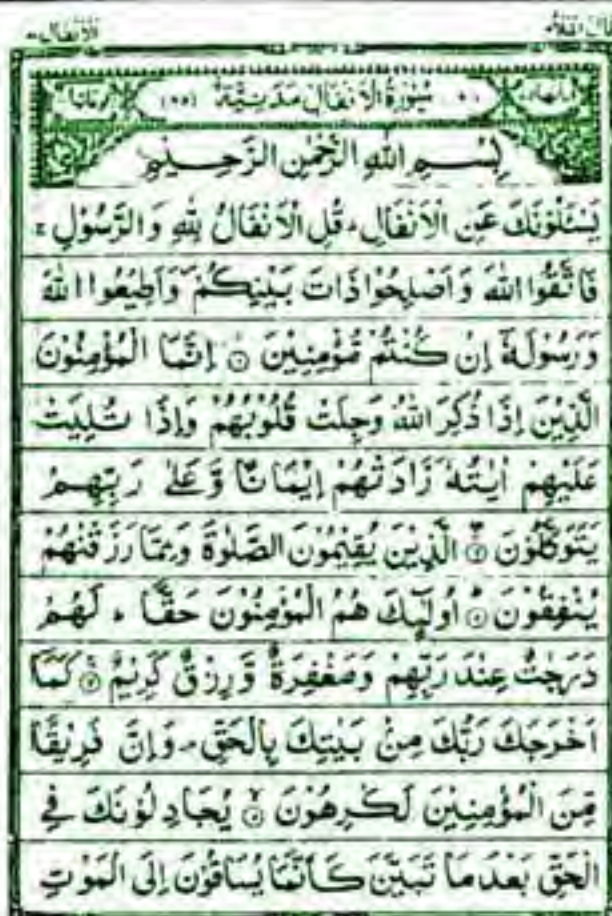 الانفال
قال الملأ
سُوْرَةُ الْاَنْفَالِ مَدَنِيَّةٌ
بِسْمِ اللهِ الرَّحْمٰنِ الرَّحِيْمِ
يَسْـَٔلُوْنَكَ عَنِ الْاَنْفَالِ ؕ قُلِ الْاَنْفَالُ لِلّٰهِ وَ الرَّسُوْلِ ۚ
فَاتَّقُوا اللهَ وَ اَصْلِحُوْا ذَاتَ بَيْنِكُمْ ۪ وَ اَطِيْعُوا اللهَ
وَرَسُوْلَهٗۤ اِنْ كُنْتُمْ مُّؤْمِنِيْنَ ۝ اِنَّمَا الْمُؤْمِنُوْنَ
الَّذِيْنَ اِذَا ذُكِرَ اللهُ وَجِلَتْ قُلُوْبُهُمْ وَاِذَا تُلِيَتْ
عَلَيْهِمْ اٰيٰتُهٗ زَادَتْهُمْ اِيْمَانًا وَّعَلٰى رَبِّهِمْ
يَتَوَكَّلُوْنَ ۝ الَّذِيْنَ يُقِيْمُوْنَ الصَّلٰوةَ وَمِمَّا رَزَقْنٰهُمْ
يُنْفِقُوْنَ ۝ اُولٰٓئِكَ هُمُ الْمُؤْمِنُوْنَ حَقًّا ؕ لَهُمْ
دَرَجٰتٌ عِنْدَ رَبِّهِمْ وَمَغْفِرَةٌ وَّرِزْقٌ كَرِيْمٌ ۝ كَمَاۤ
اَخْرَجَكَ رَبُّكَ مِنْۢ بَيْتِكَ بِالْحَقِّ ۪ وَاِنَّ فَرِيْقًا
مِّنَ الْمُؤْمِنِيْنَ لَكٰرِهُوْنَ ۝ يُجَادِلُوْنَكَ فِي
الْحَقِّ بَعْدَ مَا تَبَيَّنَ كَاَنَّمَا يُسَاقُوْنَ اِلَى الْمَوْتِ